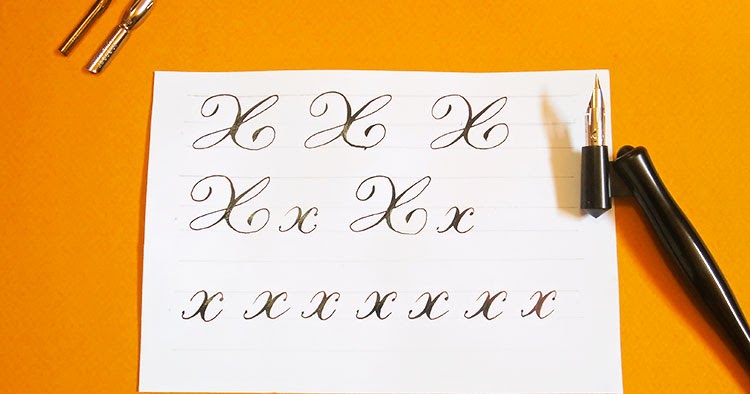 X X X
X x X x
x x x x x x x